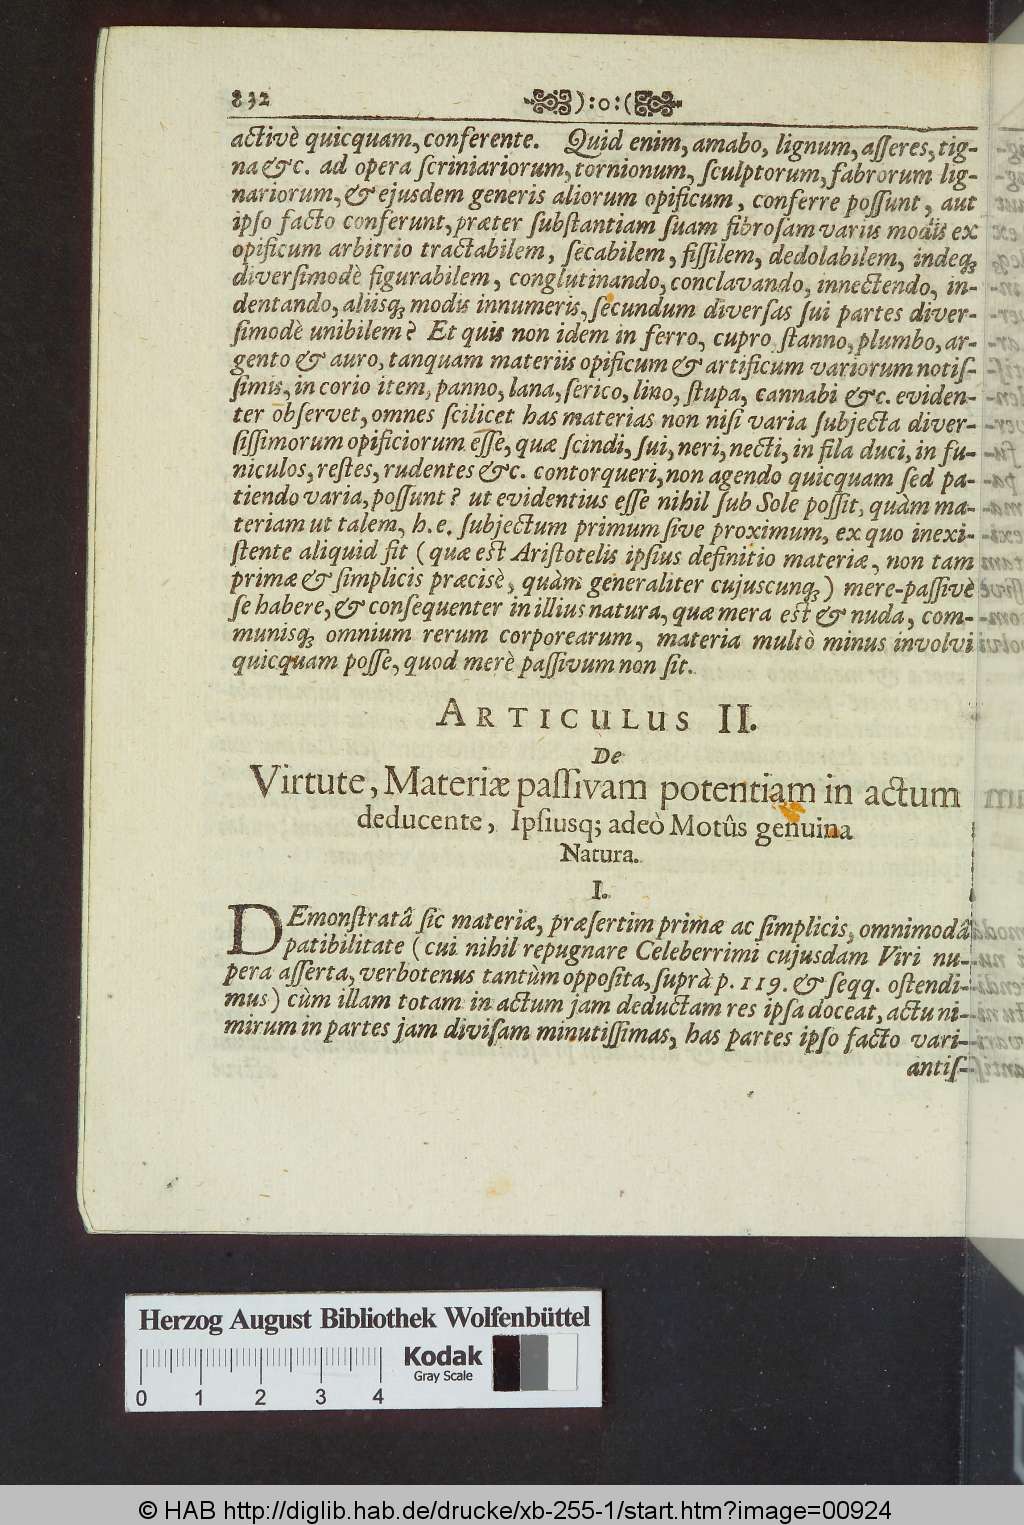 832 ):o:(
activè quicquam, conferente. Quid enim, amabo, lignum, asseres, tig-
na &c. ad opera scriniariorum, tornionum, sculptorum, fabrorum lig-
nariorum, & ejusdem generis aliorum opificum, conferre possunt, aut
ipso facto conferunt, præter substantiam suam fibrosam variis modiis ex
opificum arbitrio tractabilem, secabilem, fissilem, dedolabilem, indeq;
diversimodè figurabilem, conglutinando, conclavando, innectendo, in-
dentando, aliisq; modis innumeris, secundum diversas sui partes diver-
simodè unibilem? Et quis non idem in ferro, cupro stanno, plumbo, ar-
gento & auro, tanquam materiis opificum & artificum variorum notis-
simis, in corio item, panno, lana, serico, lino, stupa, cannabi &c. eviden-
ter observet, omnes scilicet has materias non nisi varia subjecta diver-
sissimorum opificiorum esse, quæ scindi, sui, neri, necti, in fila duci, in fu-
niculos, restes, rudentes &c. contorqueri, non agendo quicquam sed pa-
tiendo varia, possunt? ut evidentius esse nihil sub Sole possit, quàm ma-
teriam ut talem, h.e. subjectum primum sive proximum, ex quo inexi-
stente aliquid fit (quæ est Aristotelis ipsius definitio materiæ, non tam
primæ & simplicis præcisè, quàm generaliter cujuscunq;) mere-passivè
se habere, & consequenter in illius natura, quæ mera est & nuda, com-
munisq; omnium rerum corporearum, materia multò minus involvi
quicquam posse, quod merè passivum non sit.
ARTICULUS II.
De
Virtute, Materiæ passivam potentiam in actum
deducente, Ipsiusq; adeò Motûs genuina
Natura.
I.
DEmonstratâ sic materiæ, præsertim primæ ac simplicis, omnimodâ
patibilitate (cui nihil repugnare Celeberrimi cujusdam Viri nu-
pera asserta, verbotenus tantùm opposita, suprà p. 119. & seqq. ostendi-
mus) cùm illam totam in actum jam deductam res ipsa doceat, actu ni-
mirum in partes jam divisam minutissimas, has partes ipso facto vari-
antis-
Herzog August Bibliothek Wolfenbüttel
Kodak
Gray Scale
0 1 2 3 4
© HAB http://diglib.hab.de/drucke/xb-255-1/start.htm?image=00924